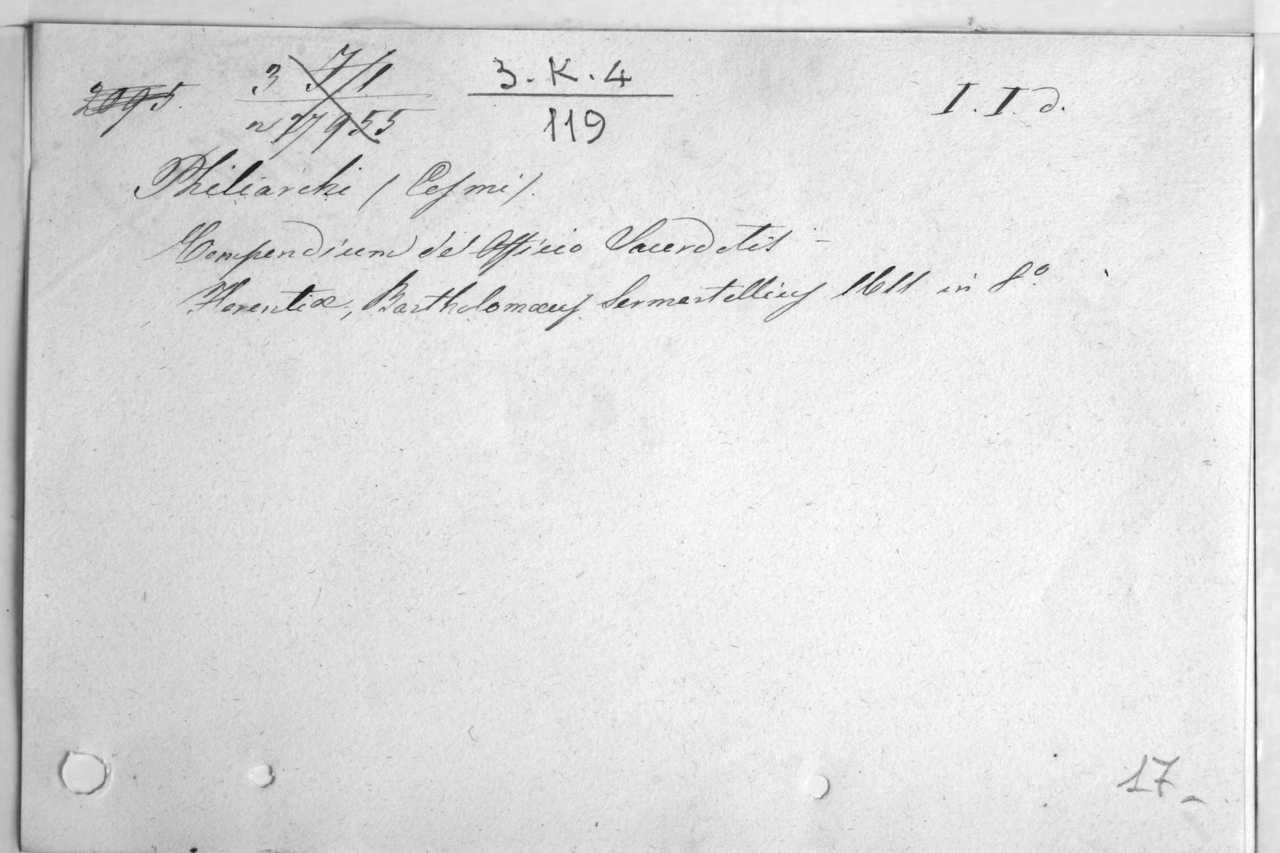 2095. 3 57/1 3.K.4 I.I.d.
n 17955 119
Philiarchi / Cosmi /.
Compendium de Officio Sacerdotis -
Florentiæ, Bartholomæus Sermartellius 1611 in 8º
17-